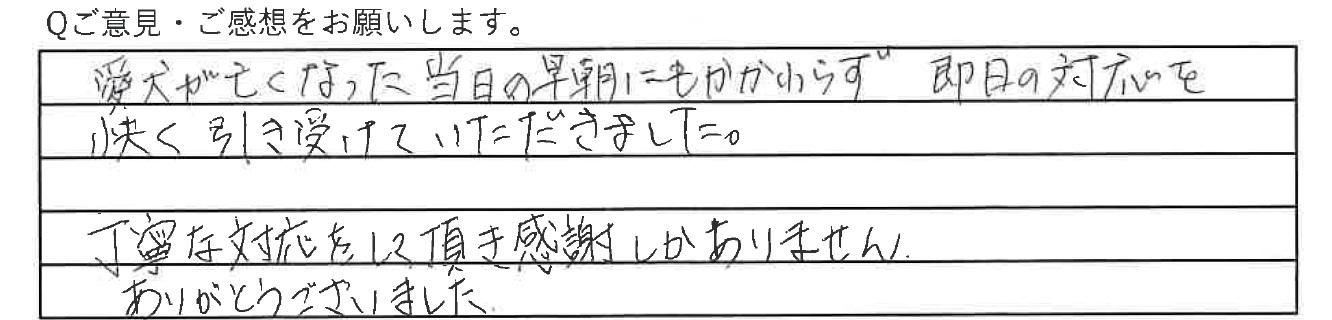 Qご意見・ご感想をお願いします。
愛犬が亡くなった当日の早朝にもかかわらず 即日の対応を
快く引き受けていただきました。
丁寧な対応をして頂き感謝しかありません。
ありがとうございました。